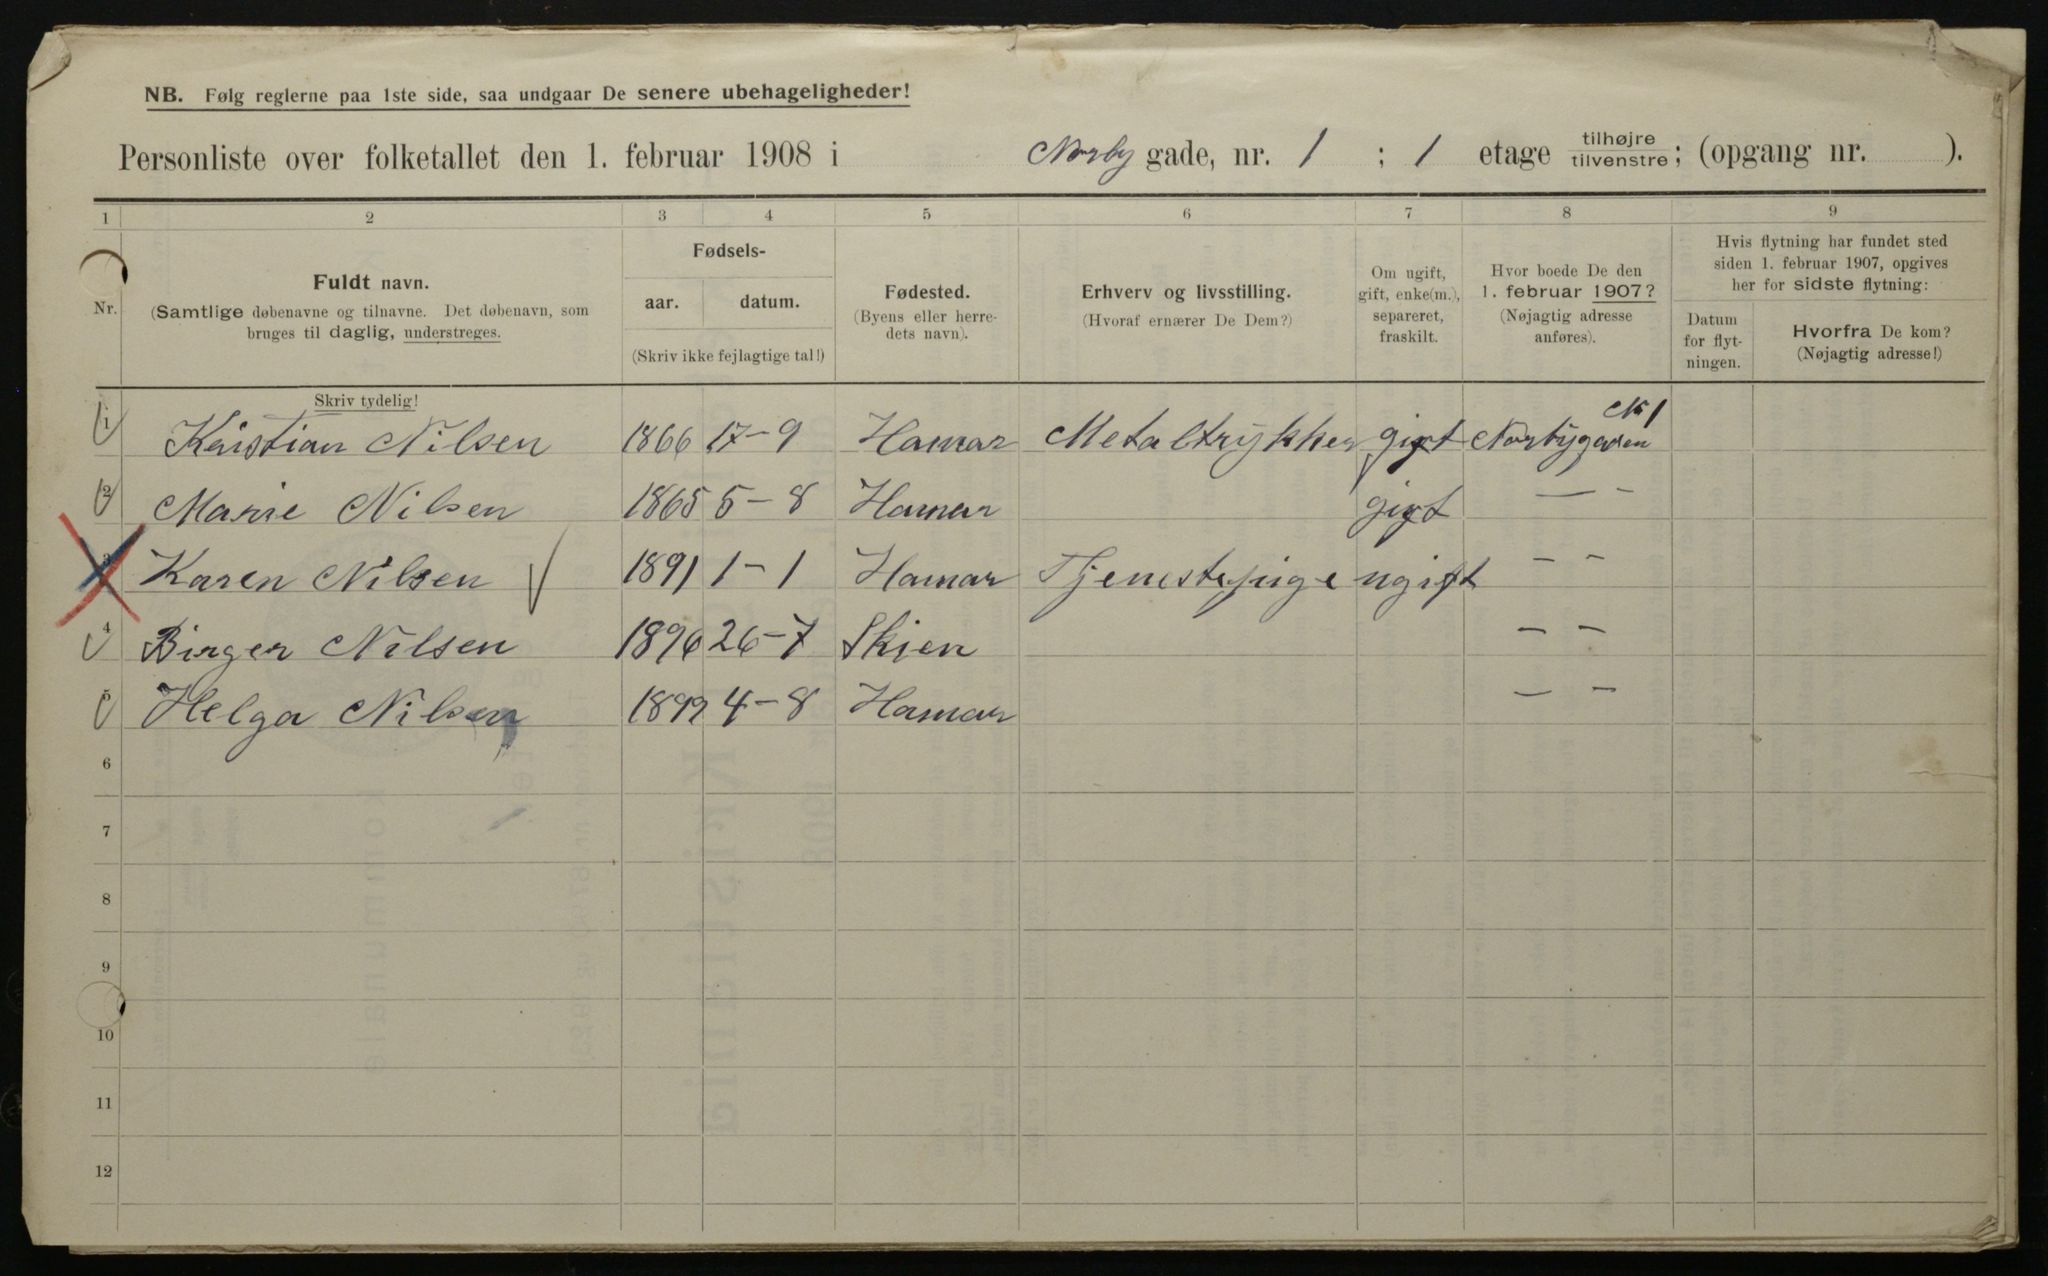 NB. Følg reglerne paa 1ste side, saa undgaar De senere ubehageligheder!
Personliste over folketallet den 1. februar 1908 i Norby gade, nr. 1 ; 1 etage tilhøjre tilvenstre; (opgang nr. ).
1 2 3 4 5 6 7 8 9
Nr.
Fuldt navn.
(Samtlige døbenavne og tilnavne. Det døbenavn, som
bruges til daglig, understreges.
Fødsels-
aar. datum.
(Skriv ikke fejlagtige tal!)
Fødested.
(Byens eller herre-
dets navn).
Erhverv og livsstilling.
(Hvoraf ernærer De Dem?)
Om ugift,
gift, enke(m.),
separeret,
fraskilt.
Hvor boede De den
1. februar 1907?
(Nøjagtig adresse
anføres).
Hvis flytning har fundet sted
siden 1. februar 1907, opgives
her for sidste flytning:
Datum
for flyt-
ningen.
Hvorfra De kom?
(Nøjagtig adresse!)
Skriv tydelig!
1 Kristian Nilsen 1866 17-9 Hamar Metaltrykker gift Norbygaden No 1
2 Marie Nilsen 1865 5-8 Hamar gift — -
3 Karen Nilsen 1891 1-1 Hamar Tjenestepige ugift - -
4 Birger Nilsen 1896 26-7 Skien - -
5 Helga Nilsen 1899 4-8 Hamar - -
6
7
8
9
10
11
12